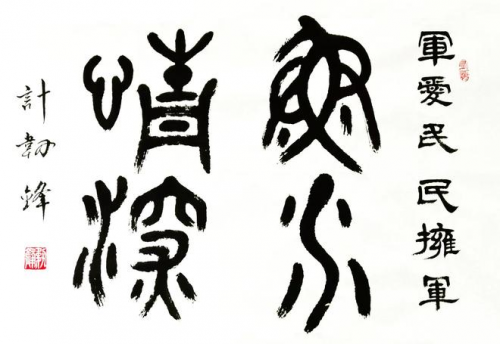 軍愛民民擁軍
魚水
情深
計韌鋒